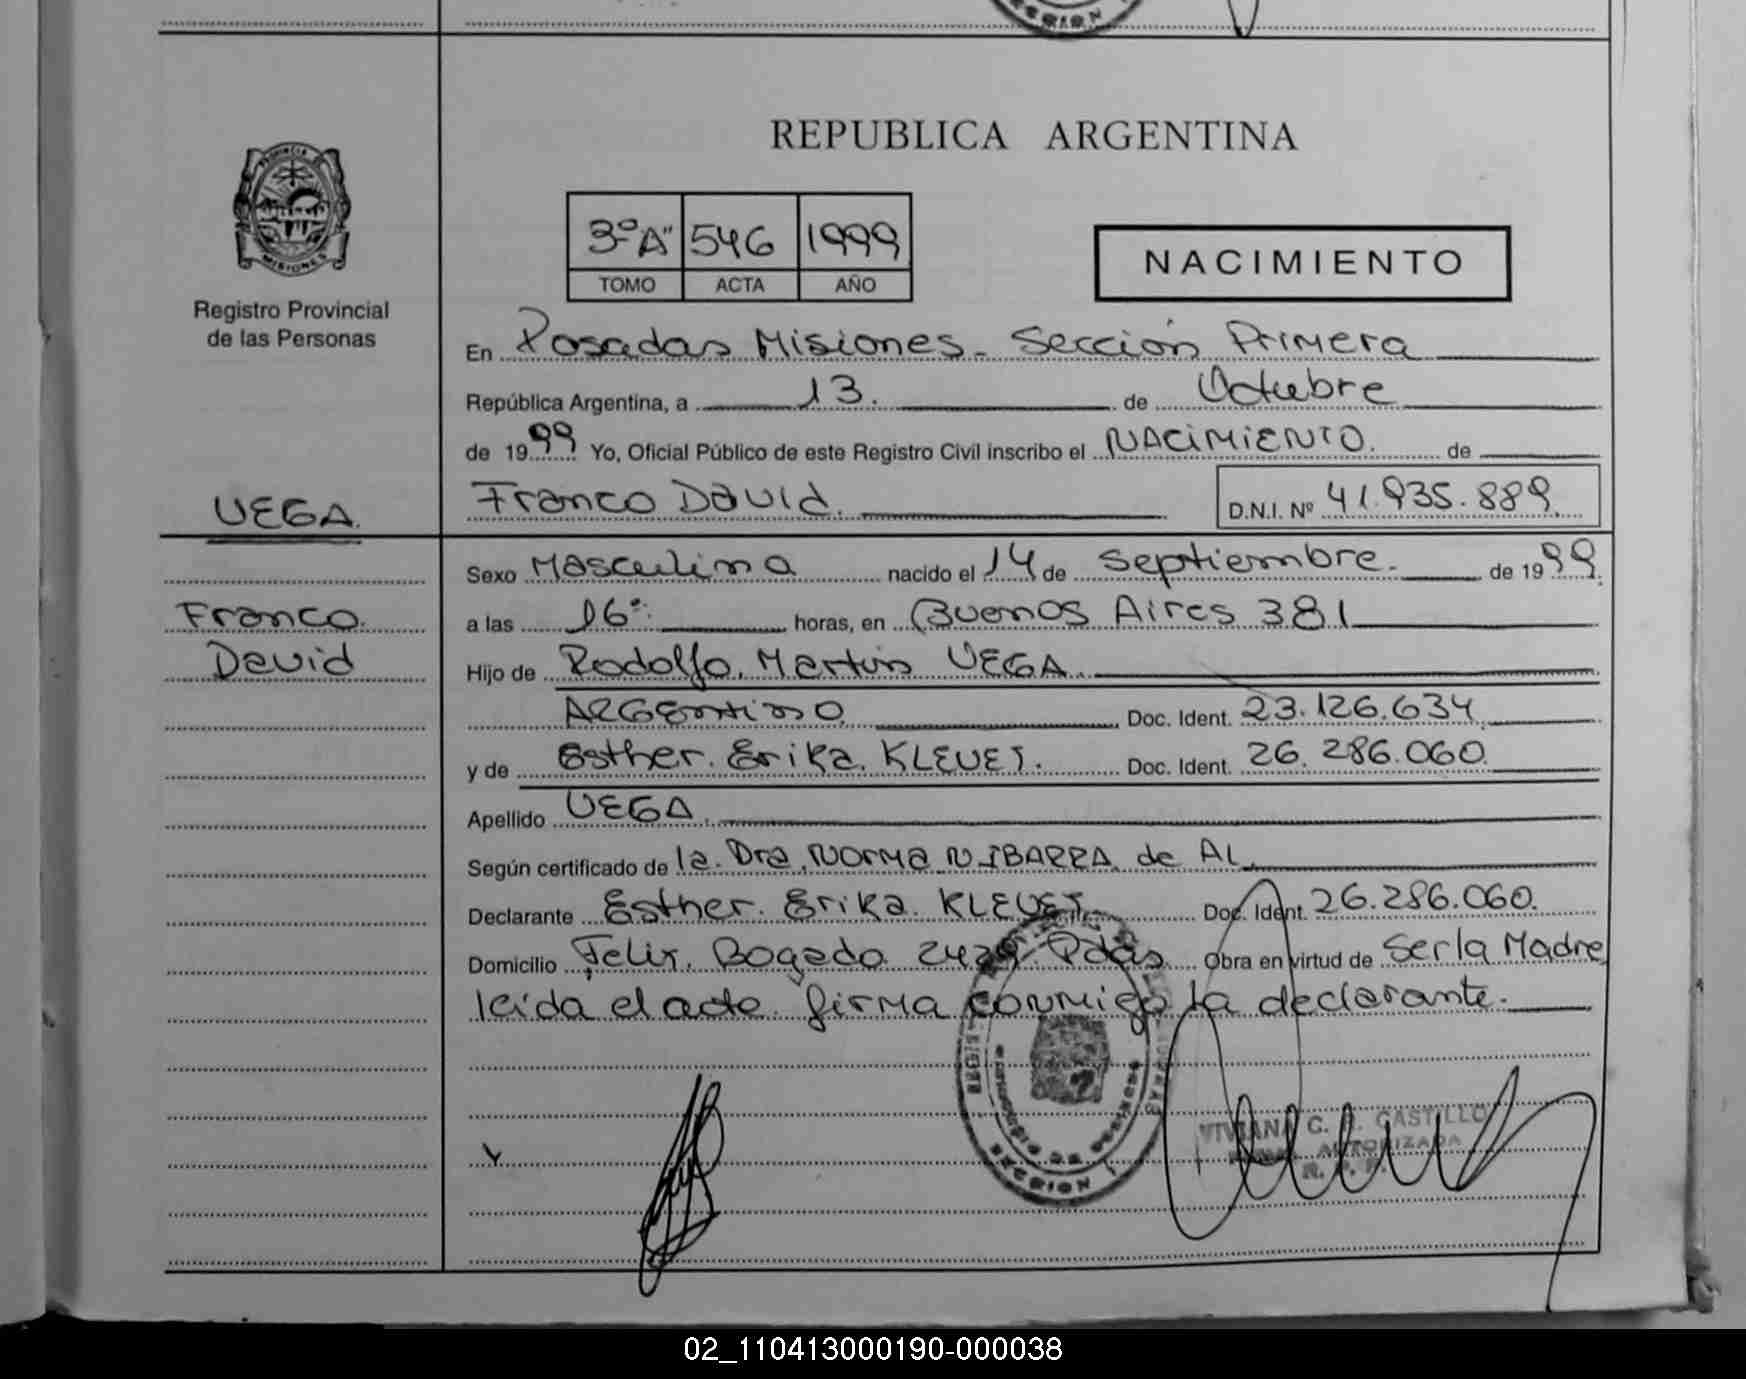 REPUBLICA ARGENTINA
PROVINCIA DE
MISIONES
Registro Provincial
de las Personas
3º "A" 546 1999
TOMO ACTA AÑO
NACIMIENTO
En Posadas Misiones. Sección Primera
República Argentina, a 13. de Octubre
de 1999 Yo, Oficial Público de este Registro Civil inscribo el NACIMIENTO. de
VEGA. Franco David. D.N.I. Nº 41.935.889.
Sexo Masculino nacido el 14 de Septiembre. de 1999.
Franco. a las 16: horas, en Buenos Aires 381
David Hijo de Rodolfo. Martin VEGA.
ARGentino Doc. Ident. 23.126.634.
y de Esther. Erika. KLEVET. Doc. Ident. 26.286.060.
Apellido VEGA.
Según certificado de la. Dra. Norma N. IBARRA de AL.
Declarante Esther. Erika. KLEVET. Doc. Ident. 26.286.060.
Domicilio Felix. Bogado 2429 Pdas Obra en virtud de Ser la Madre
leida el acto. firma conmigo la declarante.
VIVIANA C. CASTILLO
AUTORIZADA
SECCION
02_110413000190-000038